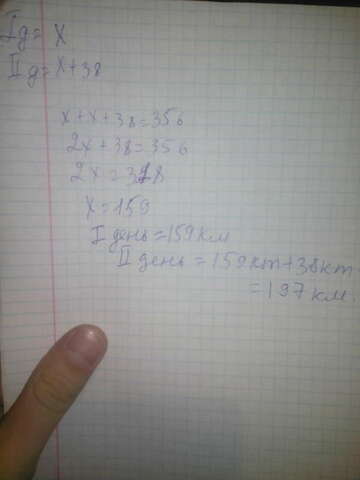 I д = x
II д = x+38
x+x+38=356
2x+38=356
2x=318
x=159
I день=159км
II день = 159km+38km=
=197км